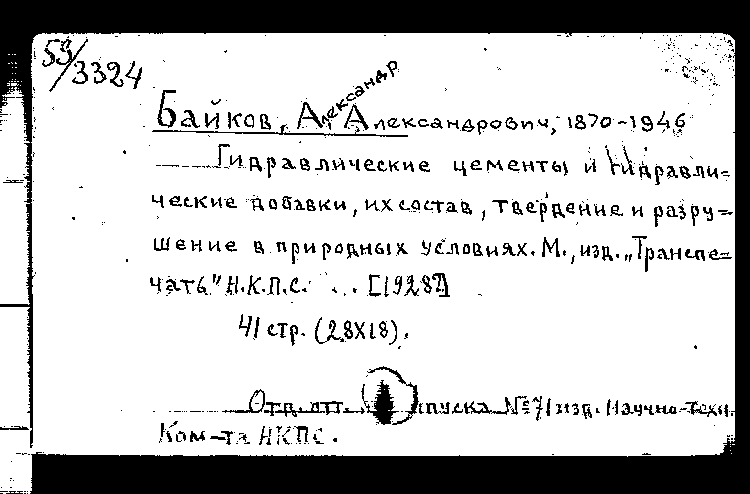 59/3324
Байков, Александр Александрович, 1870-1946
Гидравлические цементы и гидравли=
ческие добавки, их состав, твердение и разру=
шение в природных условиях. М., изд. „Транспе=
чать" Н.К.П.С. ... [1928?]
41 стр. (28х18).
Отд. отт. выпуска №71 изд. Научно-техн.
Ком-та НКПС.